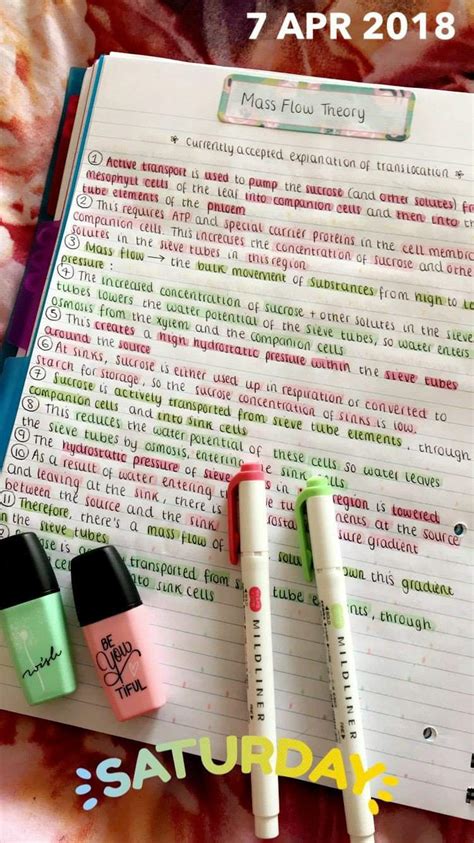 7 APR 2018
Mass Flow Theory
* Currently accepted explanation of translocation *
① Active transport is used to pump the sucrose (and other solutes) fr
mesophyll cells of the leaf into companion cells and then into th
tube elements of the phloem
② This requires ATP and special carrier proteins in the cell membr
companion cells. This increases the concentration of sucrose and othe
solutes in the sieve tubes in this region
③ Mass flow → the bulk movement of substances from high to l
pressure:
④ The increased concentration of sucrose + other solutes in the sieve
tubes lowers the water potential of the sieve tubes, so water enters
osmosis from the xylem and the companion cells
⑤ This creates a high hydrostatic pressure within the sieve tubes
around the source
⑥ At sinks, sucrose is either used up in respiration or converted to
starch for storage, so the sucrose concentration of sinks is low.
⑦ Sucrose is actively transported from sieve tube elements, through
companion cells and into sink cells
⑧ This reduces the water potential of these cells so water leaves
the sieve tubes by osmosis, entering the sink cells
⑨ The hydrostatic pressure of sieve region is lowered
⑩ As a result of water entering at the source
and leaving at the sink, there is
between the source and the sink sure gradient
⑪ Therefore, there's a mass flow of own this gradient
in the sieve tubes
transported from tube through
into sink cells
wish
BE
YOU
TIFUL
MILDLINER
MILDLINER
SATURDAY